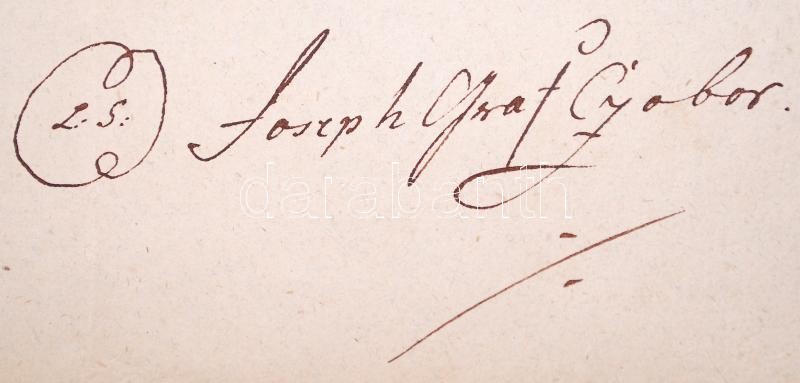 L. S. Joseph Graf Czobor.
darabanth